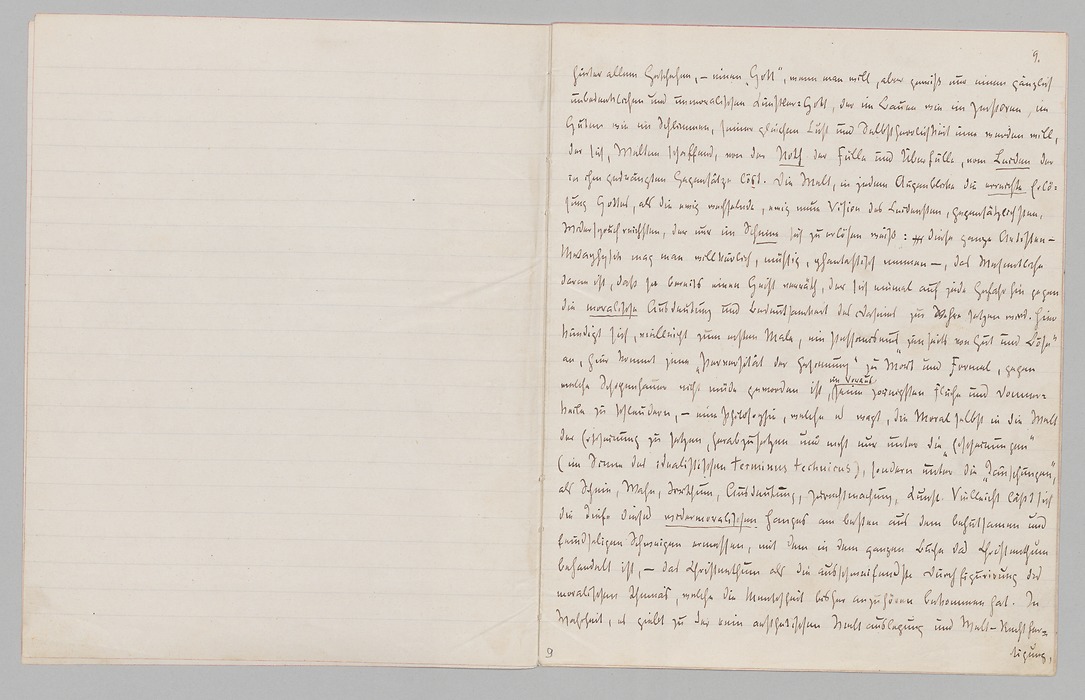 9.
hinter allem Geschehen, – einen „Gott“, wenn man will, aber gewiß nur einen gänzlich
unbedenklichen und unmoralischen Künstler-Gott, der im Bauen wie im Zerstören, im
Guten wie im Schlimmen, seiner gleichen Lust und Selbstherrlichkeit inne werden will,
der sich, Welten schaffend, von der Noth der Fülle und Überfülle, vom Leiden der
in ihm gedrängten Gegensätze löst. Die Welt, in jedem Augenblicke die erreichte Erlö-
sung Gottes, als die ewig wechselnde, ewig neue Vision des Leidendsten, Gegensätzlichsten,
Widerspruchreichsten, der nur im Scheine sich zu erlösen weiß: diese ganze Artisten-
Metaphysik mag man willkürlich, müßig, phantastisch nennen –, das Wesentliche
daran ist, daß sie bereits einen Geist verräth, der sich einmal auf jede Gefahr hin gegen
die moralische Ausdeutung und Bedeutsamkeit des Daseins zur Wehre setzen wird. Hier
kündigt sich, vielleicht zum ersten Male, ein Pessimismus „jenseits von Gut und Böse“
an, hier kommt jene „Perversität der Gesinnung“ zu Wort und Formel, gegen
im Voraus
welche Schopenhauer nicht müde geworden ist, seine zornigsten Flüche und Donner-
keile zu schleudern, – eine Philosophie, welche es wagt, die Moral selbst in die Welt
der Erscheinung zu setzen, herabzusetzen und nicht nur unter die „Erscheinungen“
(im Sinne des idealistischen terminus technicus), sondern unter die „Täuschungen“,
als Schein, Wahn, Irrthum, Ausdeutung, Zurechtmachung, Kunst. Vielleicht läßt sich
die Tiefe dieses widermoralischen Hanges am besten aus dem behutsamen und
feindseligen Schweigen ermessen, mit dem in dem ganzen Buche das Christenthum
behandelt ist, – das Christenthum als die ausschweifendste Durchfigurirung des
moralischen Themas, welche die Menschheit bisher anzuhören bekommen hat. In
Wahrheit, es giebt zu der rein aesthetischen Weltauslegung und Welt-Rechtfer-
tigung,
9